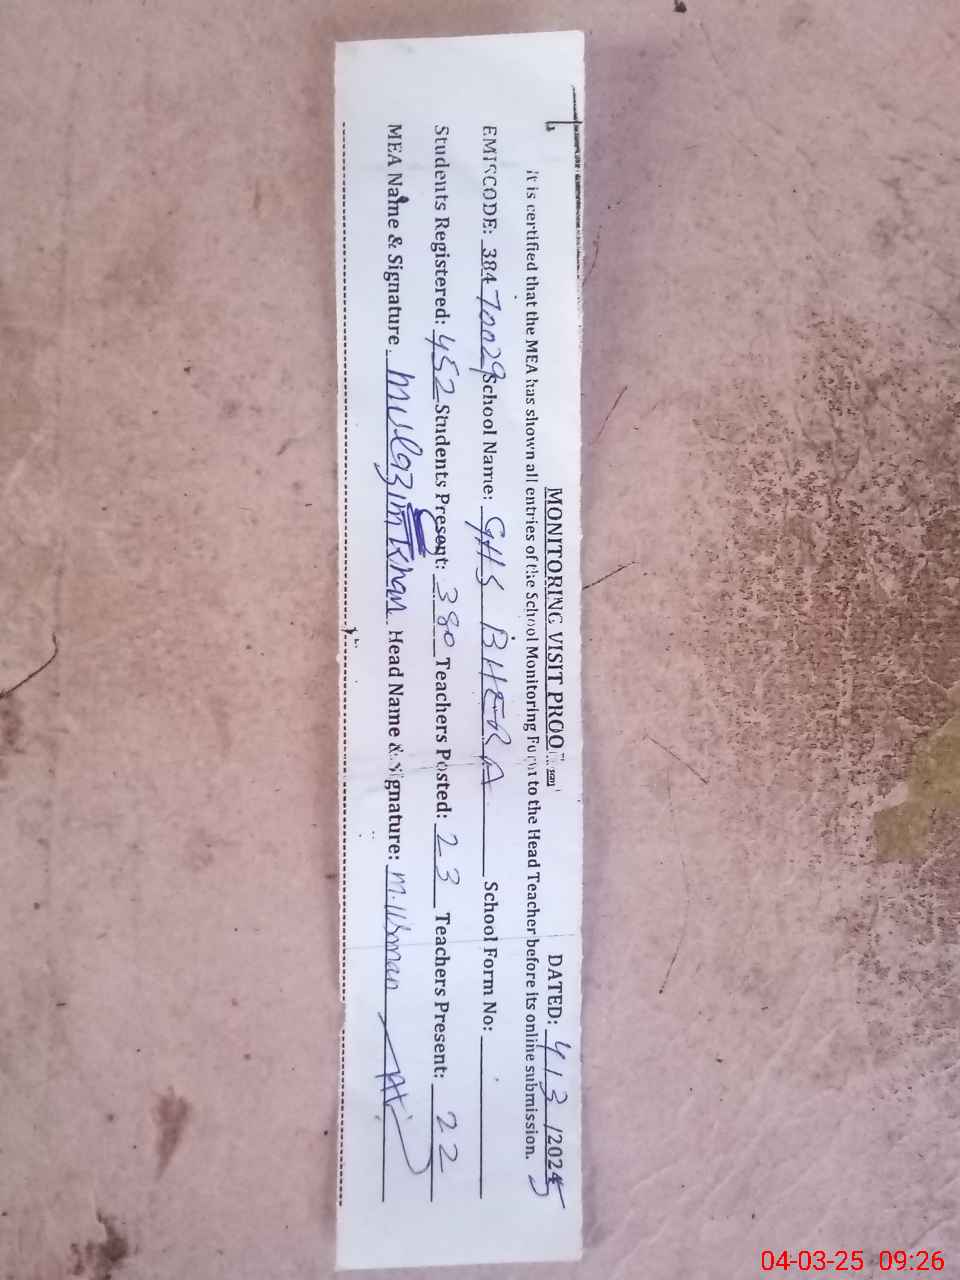 MONITORING VISIT PROO DATED: 4/3/2025
It is certified that the MEA has shown all entries of the School Monitoring Form to the Head Teacher before its online submission.
EMISCODE: 38470029 School Name: GHS BHERA School Form No:
Students Registered: 452 Students Present: 380 Teachers Posted: 23 Teachers Present: 22
MEA Name & Signature. Mulazim Khan Head Name & Signature: M. Usman
04-03-25 09:26